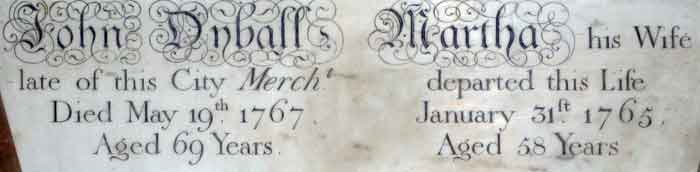 John Dyball
late of this City Merch.t
Died May 19th. 1767.
Aged 69 Years.
Martha his Wife
departed this Life
January 31st. 1765.
Aged 58 Years